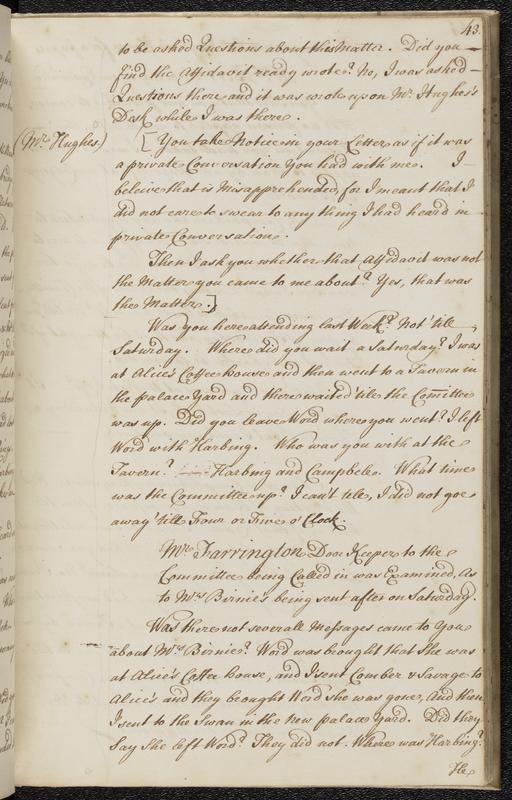 43.
to be asked Questions about this Matter. Did you
find the Affidavit ready wrote? No, I was asked
Questions there and it was wrote upon Mr. Hughes's
Desk while I was there.
(Mr. Hughes)
[You take Notice in your Letter as if it was
a private Conversation You had with me. I
beleive that is Misapprehended, for I meant that I
did not care to swear to any thing I had heard in
private Conversation.
Then I ask you whether that Affidavit was not
the Matter you came to me about? Yes, that was
the Matter.]
Was you here attending last Week? Not 'till
Saturday. Where did you wait a Saturday? I was
at Alice's Coffee house and then went to a Tavern in
the palace Yard and there waited 'till the Com̃ittee
was up. Did you leave Word where you went? I left
Word with Harbing. Who was you with at the
Tavern? Harbing and Campbell. What time
was the Committee up? I can't tell, I did not goe
away 'till Four or Five o' Clock.
Mr. Farrington Door Keeper to the
Committee being Called in was Examined, As
to Mrs Birnie's being sent after on Saturday.
Was there not severall Messages came to You
about Mrs Birnie? Word was brought that She was
at Alice's Coffee house, and I sent Comber & Savage to
Alice's and they brought Word she was gone, And then
I sent to the Swan in the New palace Yard. Did they
Say She left Word? They did not. Where was Harbing?
He